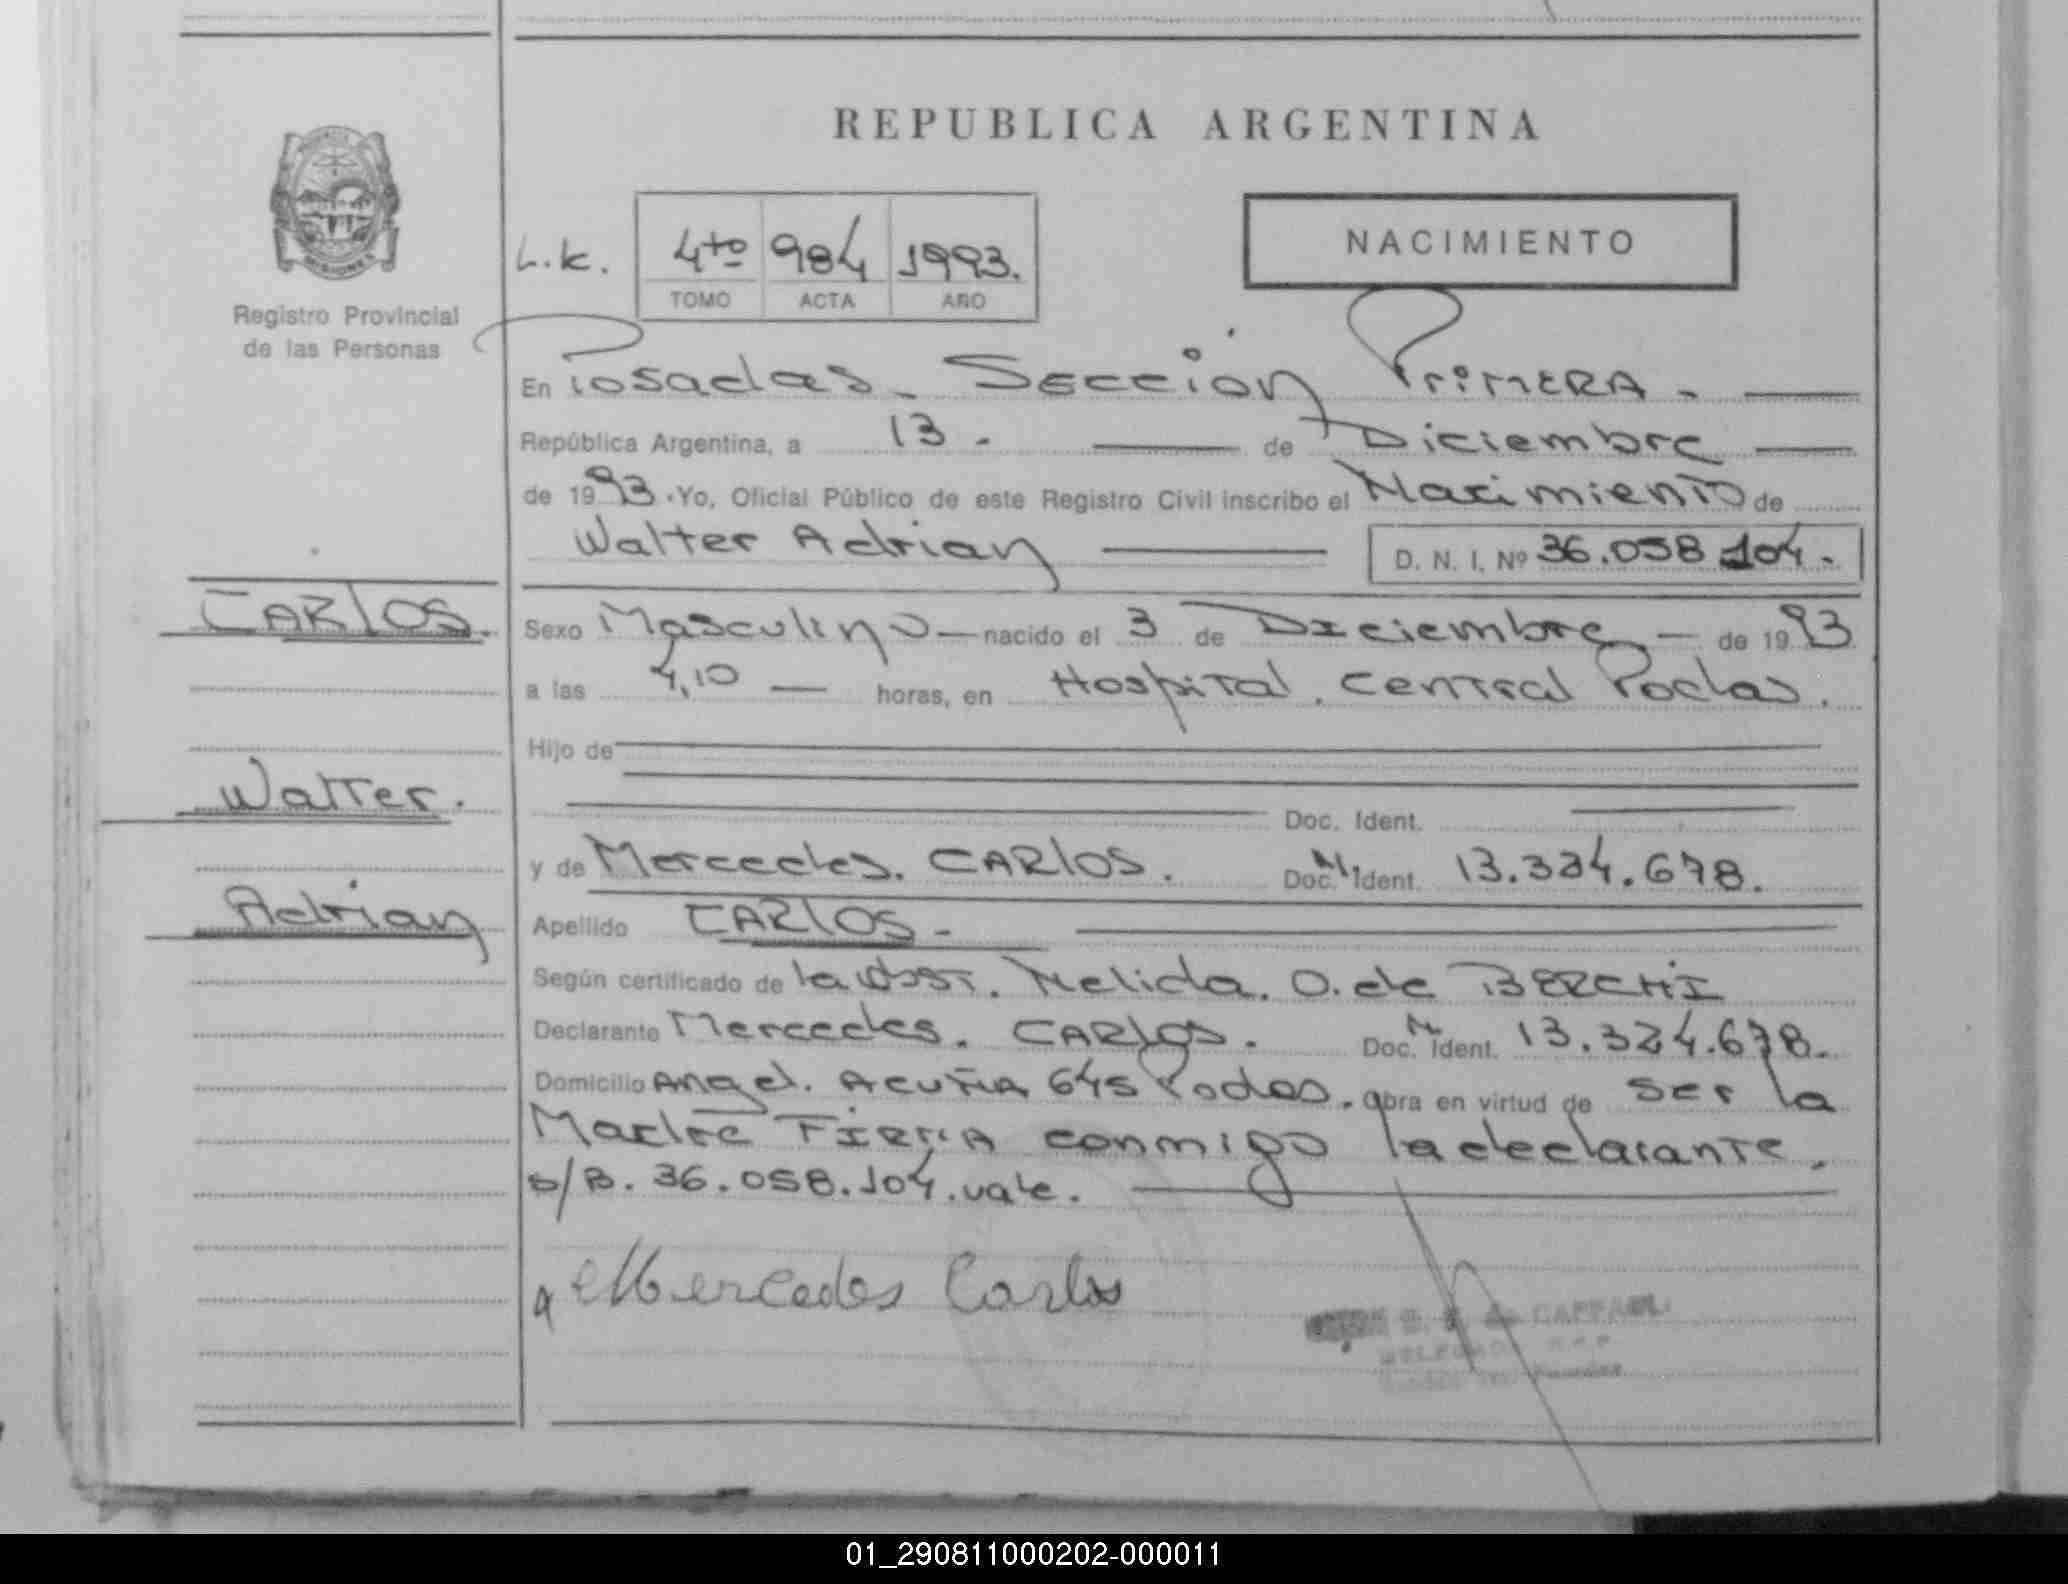 REPUBLICA ARGENTINA
MISIONES
Registro Provincial
de las Personas
L.k.
4to 984 1993.
TOMO ACTA AÑO
NACIMIENTO
En Posadas. Sección Primera -
República Argentina, a 13 - de Diciembre
de 1993. Yo, Oficial Público de este Registro Civil inscribo el Nacimiento de
Walter Adrian D. N. I. Nº 36.058.104.
CARLOS.
Sexo Masculino nacido el 3 de Diciembre de 1993
a las 4,10 horas, en Hospital. Central Podas.
Hijo de
Walter.
Doc. Ident.
y de Mercedes. CARLOS. Doc. Ident. 13.334.678.
Adrian
Apellido CARLOS -
Según certificado de la Obst. Nelida. O. de BERCHI
Declarante Mercedes. CARLOS. Doc. Ident. 13.324.678.
Domicilio Angel. Acuña 645 Podas. Obra en virtud de ser la
Madre Firma conmigo la declarante.
s/B. 36.058.104. vale.
Mercedes Carlos
01_290811000202-000011